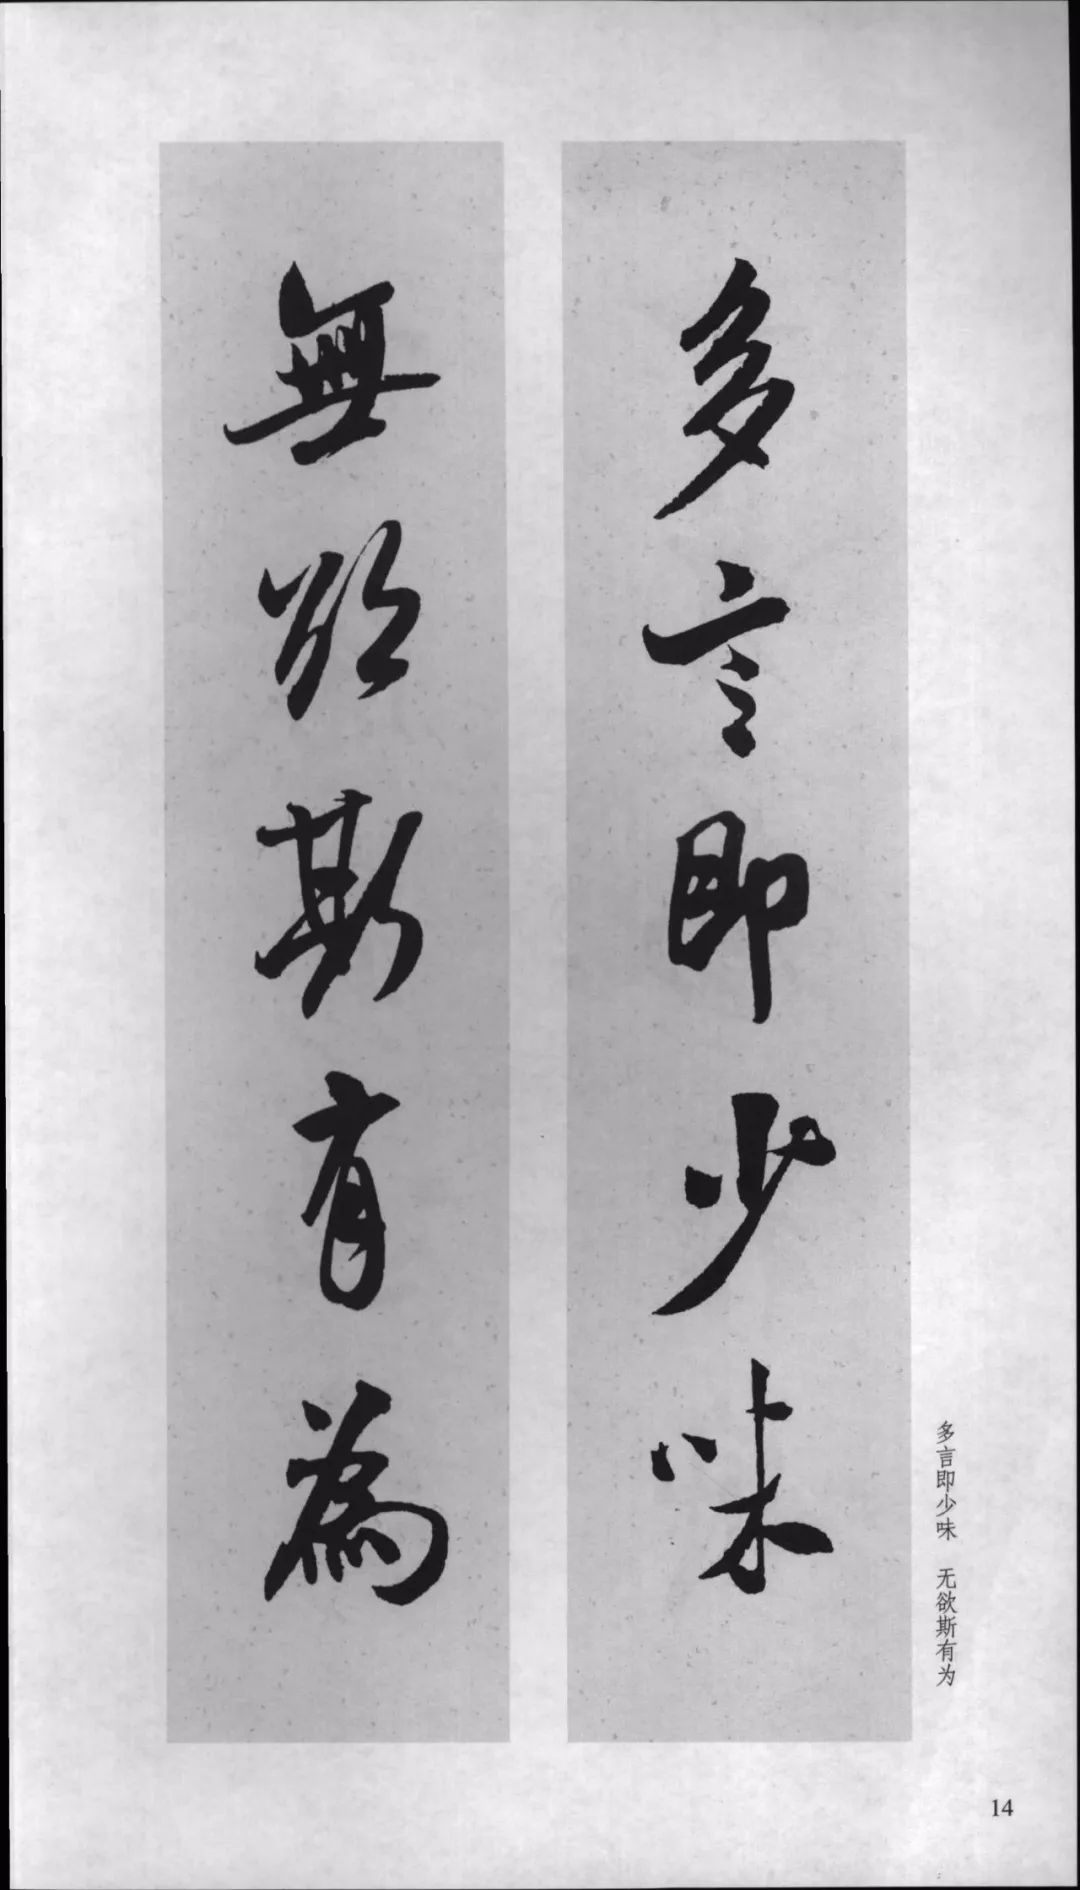 多言即少味
無欲斯有為
多言即少味 无欲斯有为
14